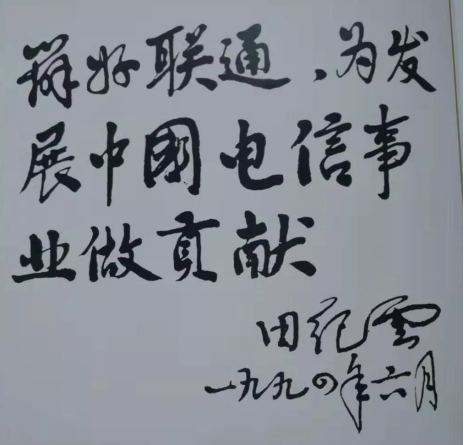 辦好联通，为发
展中國电信事
业做贡献
田纪雲
一九九四年六月